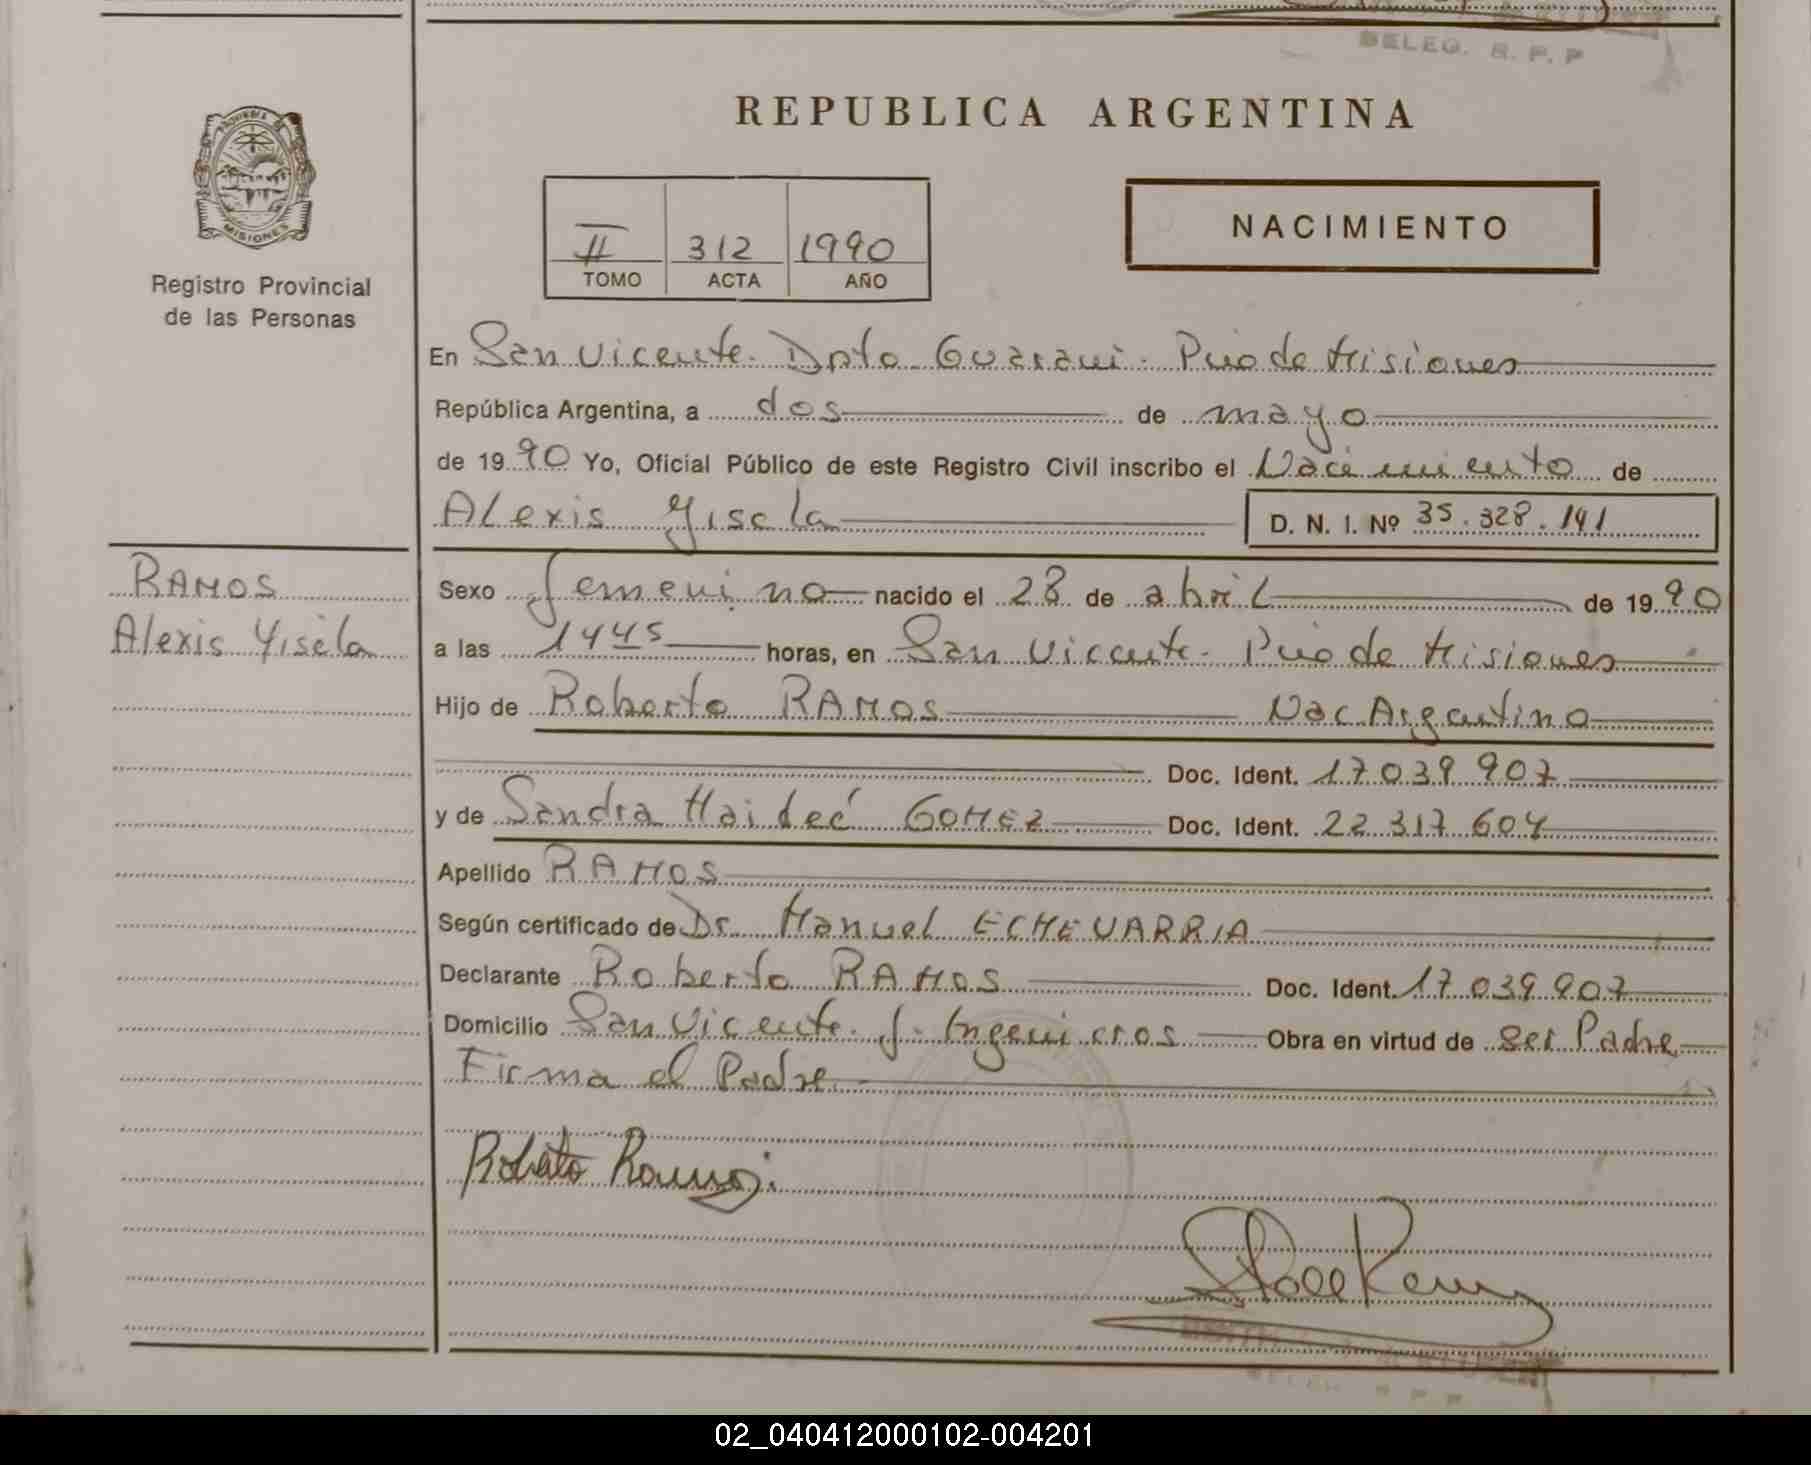 DELEG. R. P. P
REPUBLICA ARGENTINA
PROVINCIA DE
MISIONES
Registro Provincial
de las Personas
II 312 1990
TOMO ACTA AÑO
NACIMIENTO
En San Vicente. Dpto Guarani. Pcio de Misiones
República Argentina, a dos de mayo
de 1990 Yo, Oficial Público de este Registro Civil inscribo el Nacimiento de
Alexis Yisela D. N. I. Nº 35.328.141
RAMOS
Alexis Yisela
Sexo femenino nacido el 28 de abril de 1990
a las 1445 horas, en San Vicente. Pcio de Misiones
Hijo de Roberto RAMOS Nac Argentino
Doc. Ident. 17 039 907
y de Sandra Haideé GOMEZ Doc. Ident. 22 317 604
Apellido RAMOS
Según certificado de Dr. Manuel ECHEVARRIA
Declarante Roberto RAMOS Doc. Ident. 17 039 907
Domicilio San Vicente. J. Ingenieros Obra en virtud de ser Padre
Firma el Padre
Roberto Ramos
DELEG. R. P. P
02_040412000102-004201